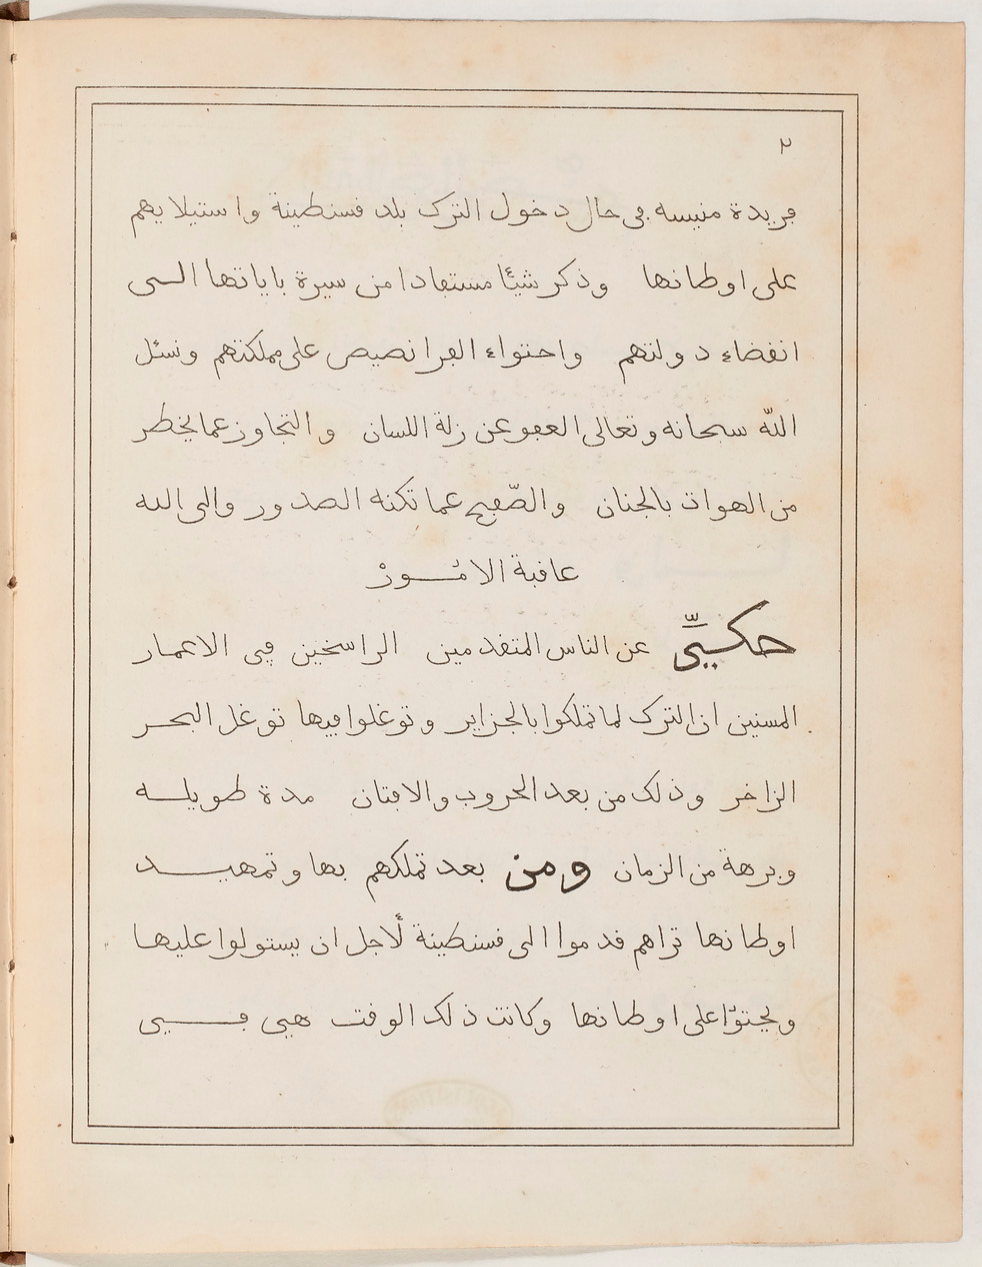 ٢
فريدة منيسه في حال دخول الترك بلد قسنطينة واستيلايهم
على اوطانها وذكر شيئا مستفادا من سيرة باياتها الــى
انقضاء دولتهم واحتواء الفرانصيص على مملكتهم ونسئل
اللّه سبحانه وتعالى العفو عن زلة اللسان والتجاوز عما يخطر
من الهوات بالجنان والصّفح عما تكنه الصدور والى الله
عاقبة الامــور
حكــيّ عن الناس المتقدمين الراسخين في الاعمــار
المسنين ان الترك لما تملكوا بالجزاير وتوغلوا فيها توغل البحــر
الزاخر وذلك من بعد الحروب والافتان مدة طويلــه
وبرهة من الزمان ومن بعد تملكهم بها وتمهيــد
اوطانها تراهم قدموا الى قسنطينة لأجل ان يستولوا عليهــا
ويحتوّا على اوطانها وكانت ذلك الوقت هي فــي